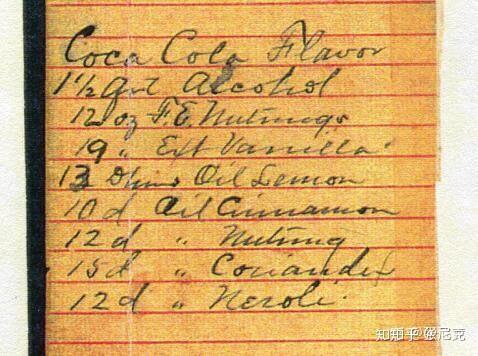 Coca Cola Flavor
1½ qrt Alcohol
12 oz F. E. Nutmegs
19 " Ext Vanilla
13 Oil Lemon
10 d Oil Cinnamon
12 d " Nutmeg
15 d " Coriander
12 d " Neroli
知乎